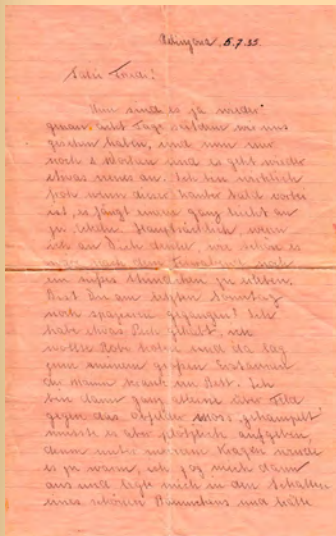 5.7.35.
Nun sind es ja wieder
genau acht Tage seitdem wir uns
gesehen haben, und nun nur
noch 2 Wochen und es geht wieder
etwas neues an. Ich bin wirklich
froh wenn dieser bald vorbei
ist, es fängt ganz leicht an
zu Hauptsächlich, wenn
ich an Dich denke, wie schön es
wäre nach dem Feierabend noch
ein süßes Stündchen zu erleben.
Bist Du am letzten Sonntag
noch spazieren gegangen? Ich
habe etwas Pech gehabt, ich
wollte holen und da lag
zum meinem großen Erstaunen
der Mann krank im Bett. Ich
bin dann ganz alleine über Feld
gegen das moos
musste es aber plötzlich aufgeben,
denn unter meinem Kragen wurde
es zu warm, ich zog mich dann
aus und legte mich in den Schatten
eines schönen Bäumchens und